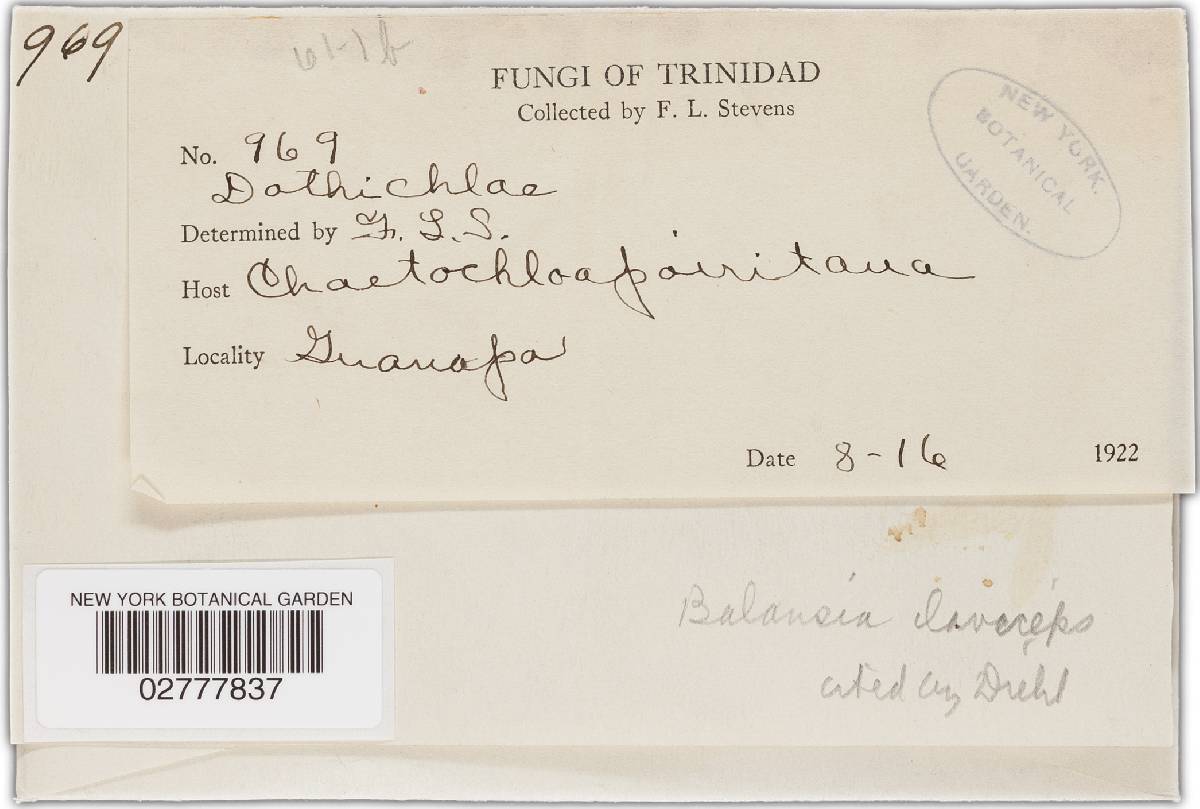 969
FUNGI OF TRINIDAD
Collected by F. L. Stevens
No. 969
Dothichlae
Determined by F. L. S.
Host Chaetochloa poiritana
Locality Guanapa
Date 8-16 1922
NEW YORK
BOTANICAL
GARDEN.
NEW YORK BOTANICAL GARDEN
02777837
Balansia claviceps
cited by Diehl